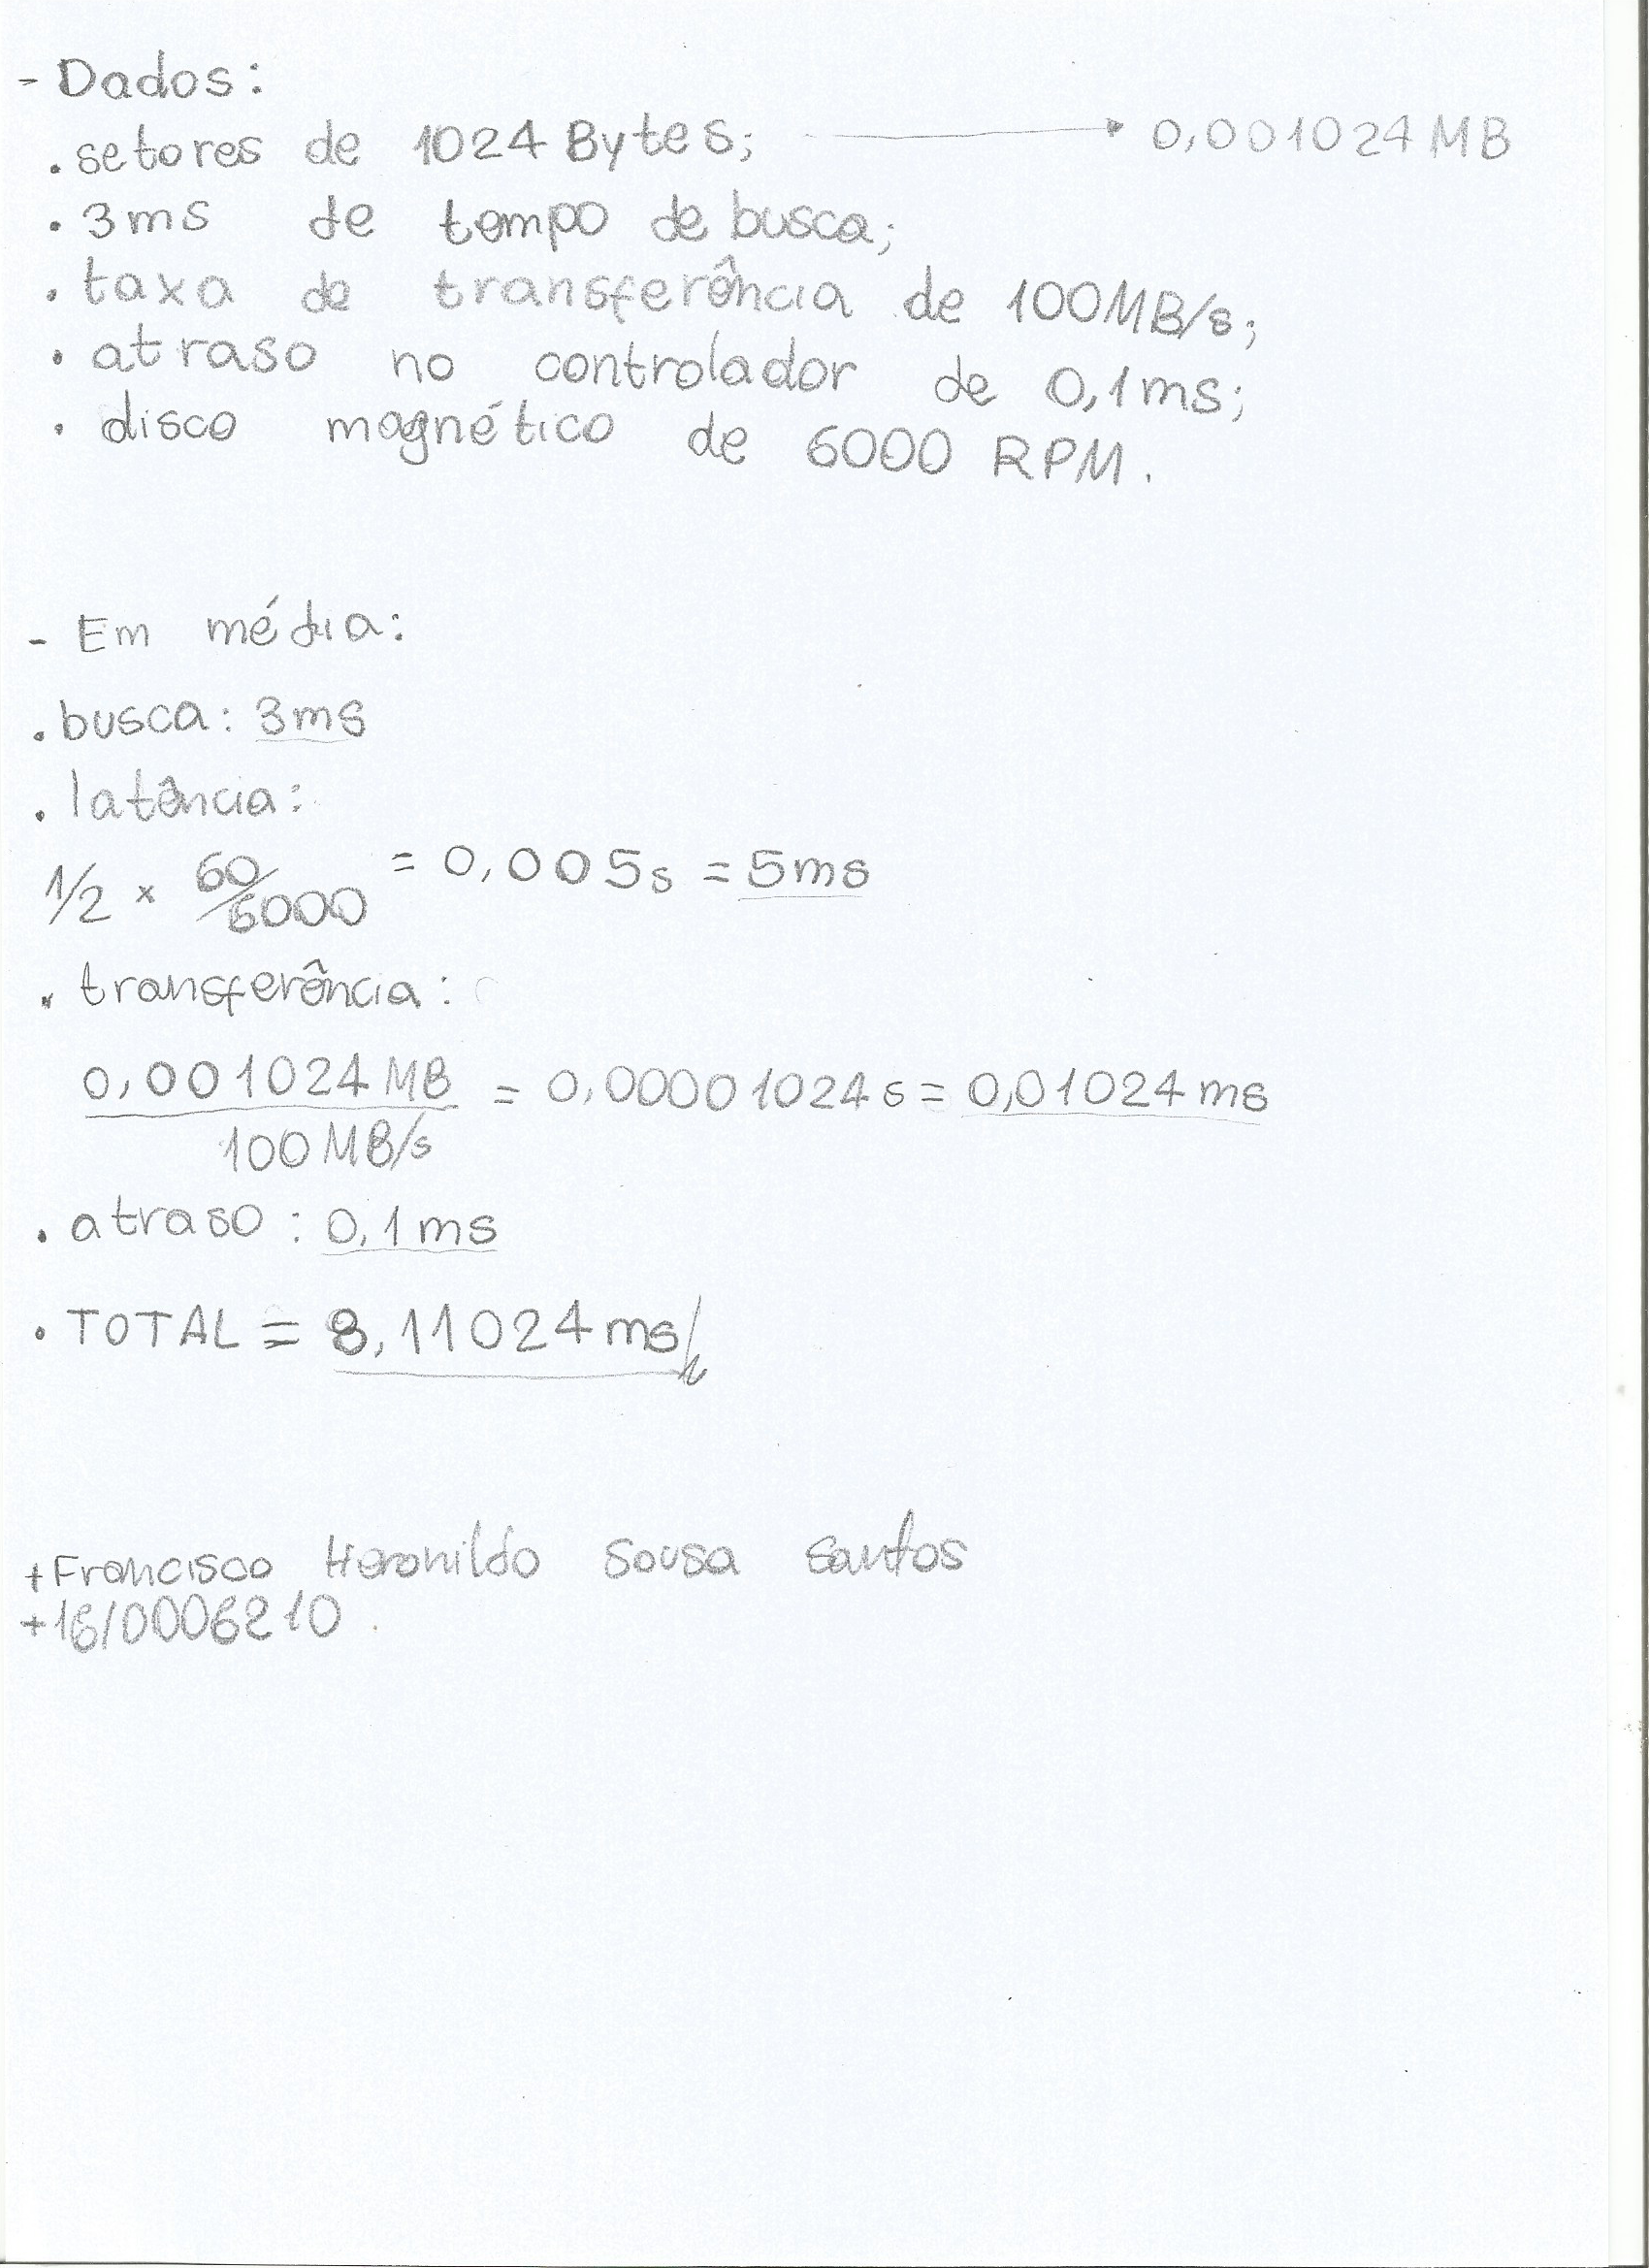 - Dados:
. setores de 1024 Bytes; → 0,001024 MB
. 3ms de tempo de busca;
. taxa de transferência de 100MB/s;
. atraso no controlador de 0,1ms;
. disco magnético de 6000 RPM.
- Em média:
. busca: 3ms
. latência:
1/2 x 60/6000 = 0,005s = 5ms
. transferência:
0,001024 MB / 100 MB/s = 0,00001024 s = 0,01024 ms
. atraso: 0,1 ms
. TOTAL = 8,11024 ms//
+Francisco Heronildo Sousa Santos
+16/0006210